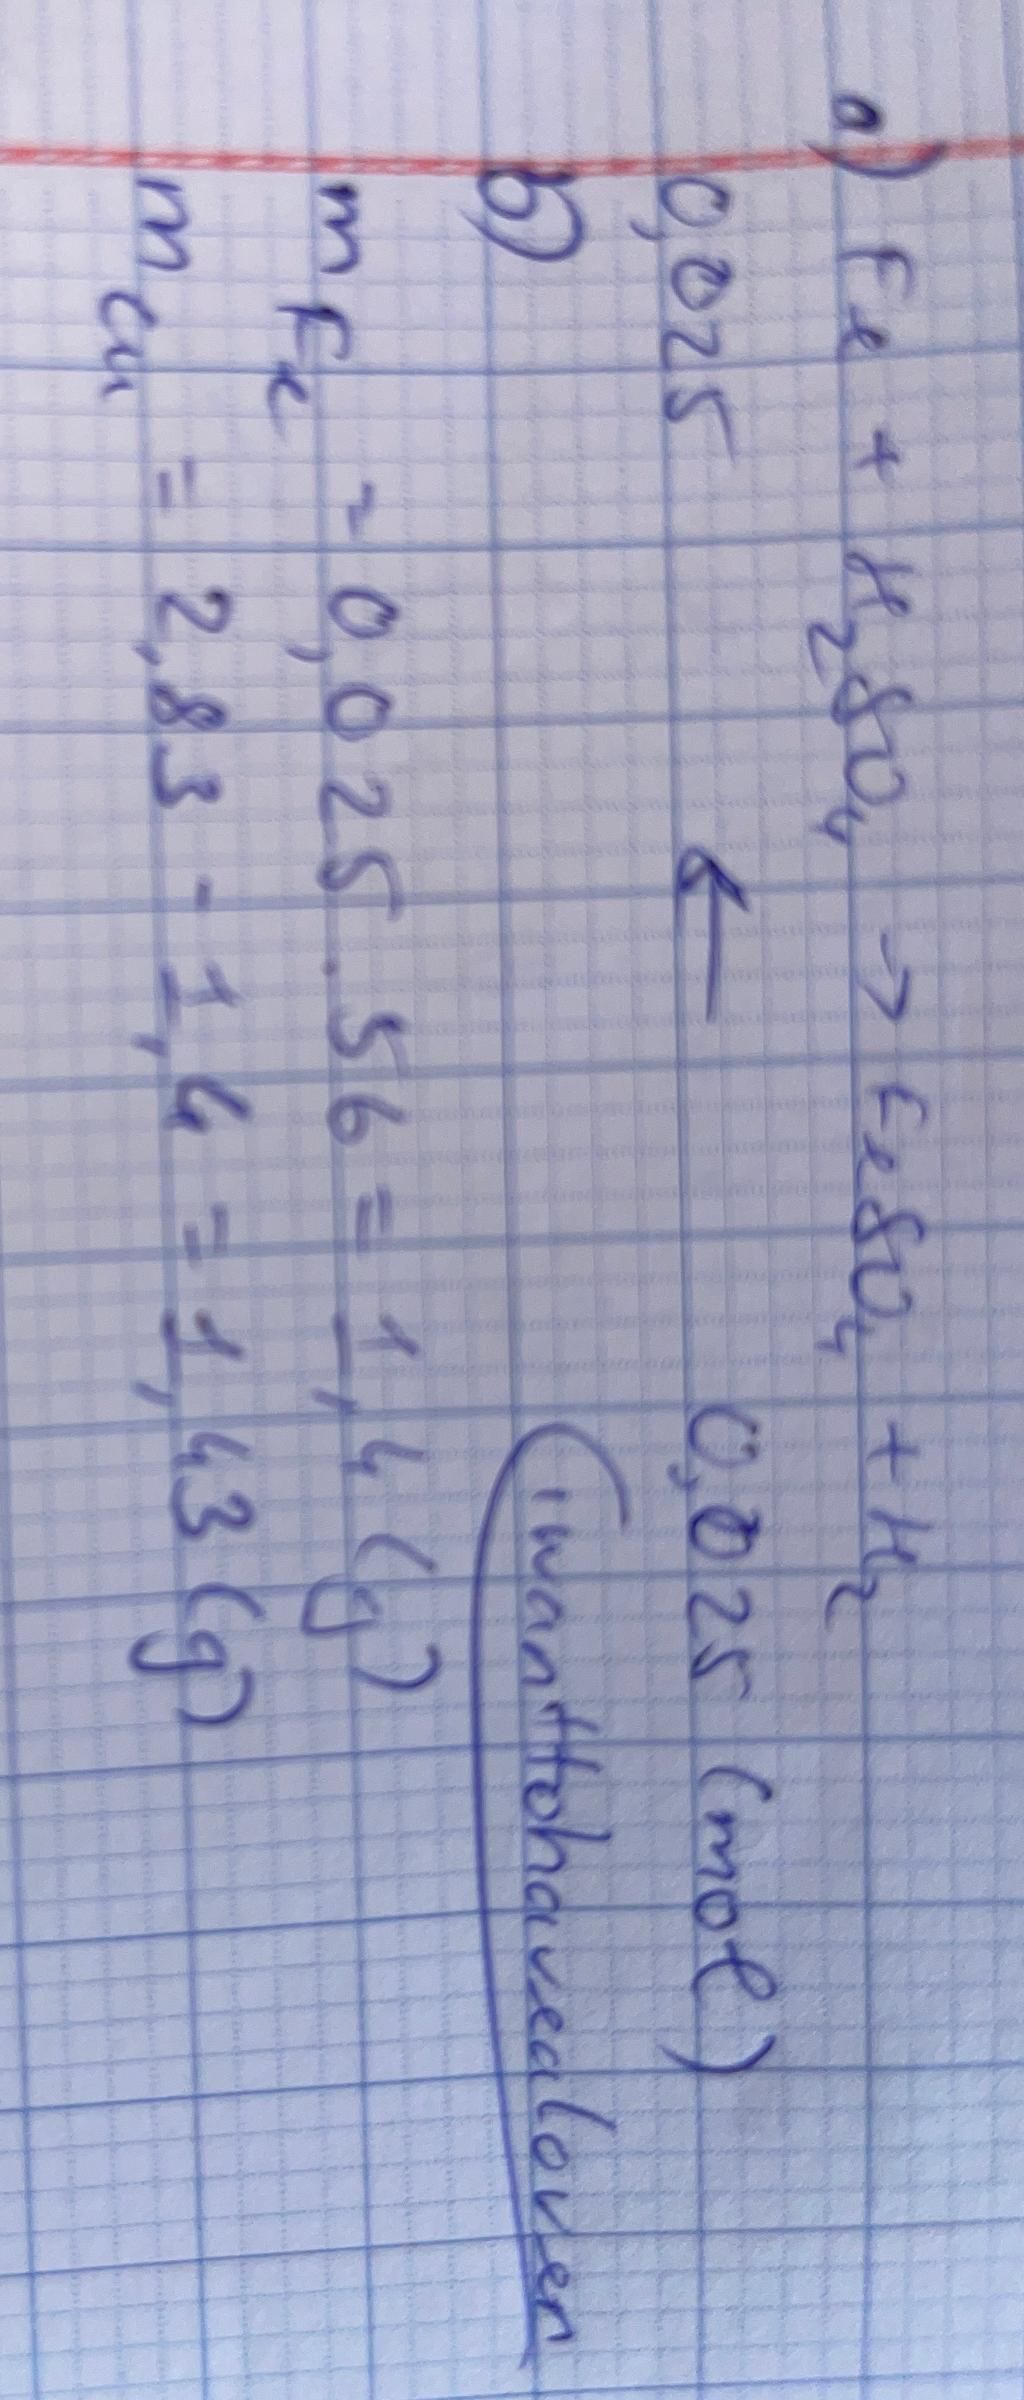 a) Fe + H₂SO₄ → FeSO₄ + H₂
0,025 ← 0,025 (mol)
b) iwanttohavealoverr
m Fe = 0,025 . 56 = 1,4 (g)
m Cu = 2,83 - 1,4 = 1,43 (g)